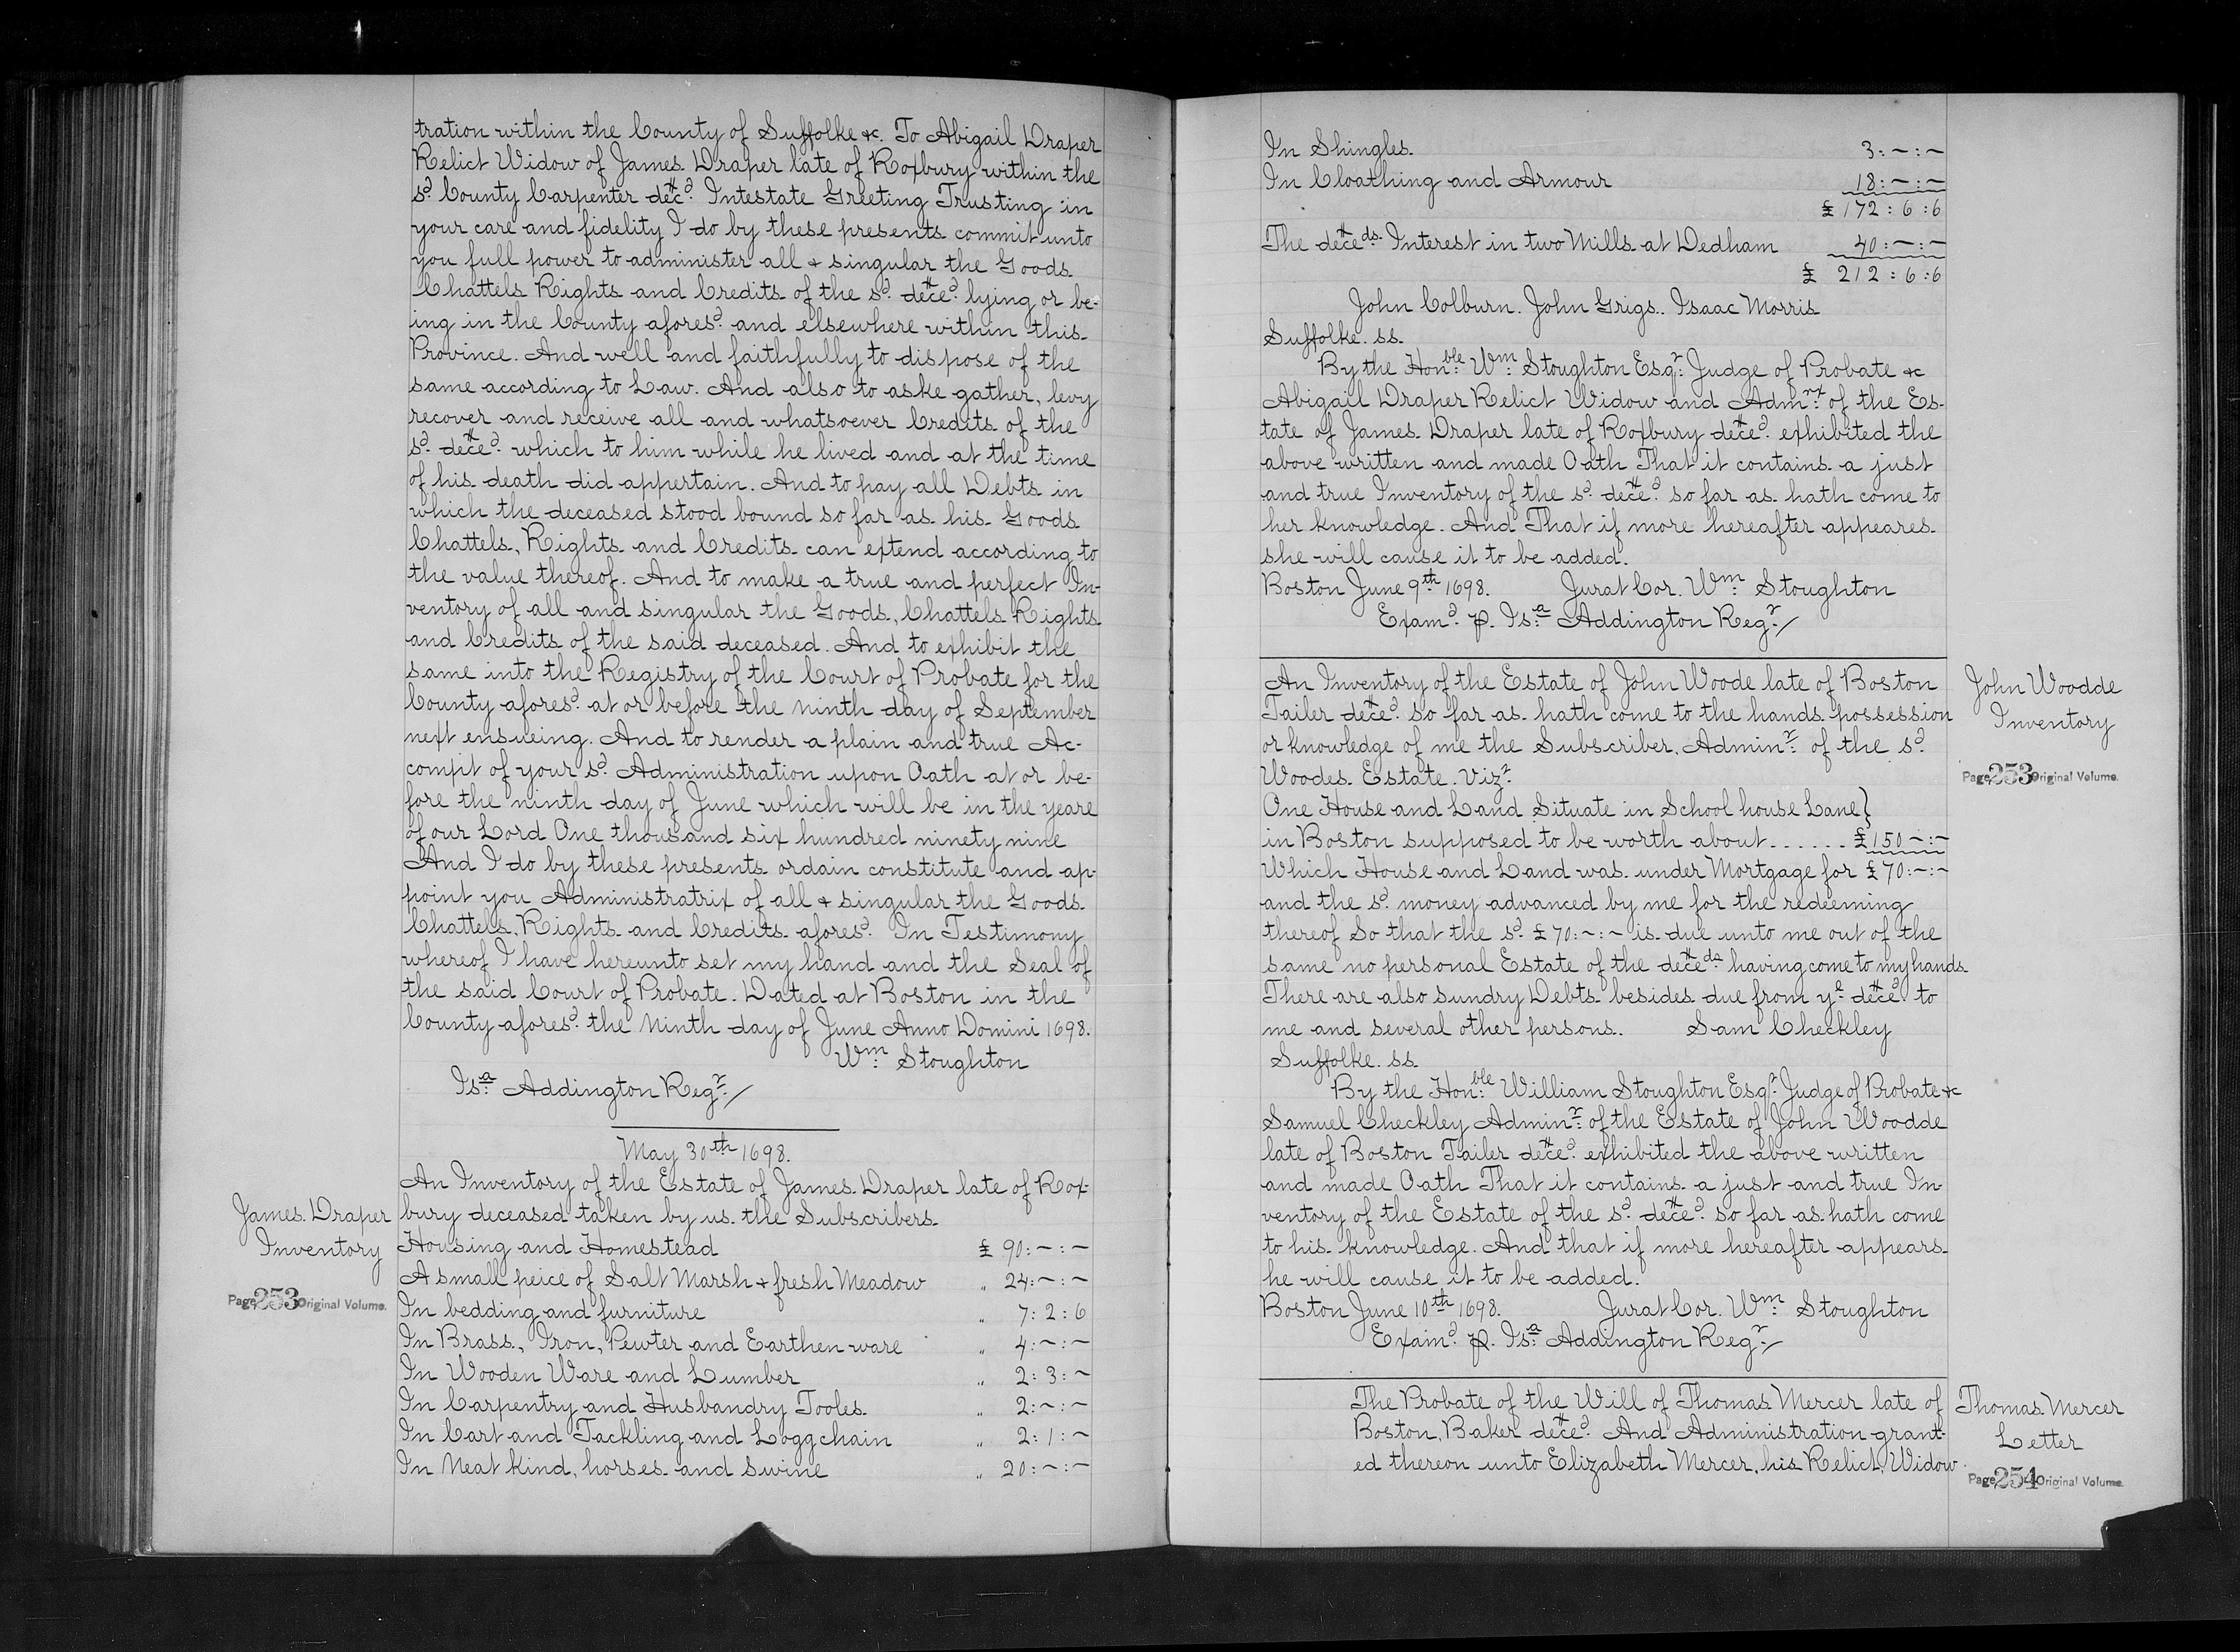 tration within the County of Suffolke &c. To Abigail Draper
Relict Widow of James Draper late of Roxbury within the
sd. County Carpenter decd. Intestate Greeting Trusting in
your care and fidelity I do by these presents commit unto
you full power to administer all & singular the Goods
Chattels Rights and Credits of the sd. deced. lying or be-
ing in the County aforesd. and elsewhere within this
Province. And well and faithfully to dispose of the
same according to Law. And also to aske gather, levy
recover and receive all and whatsoever Credits of the
sd. deced. which to him while he lived and at the time
of his death did appertain. And to pay all Debts in
which the deceased stood bound so far as his Goods
Chattels, Rights and Credits can extend according to
the value thereof. And to make a true and perfect In-
ventory of all and singular the Goods, Chattels Rights
and Credits of the said deceased. And to exhibit the
same into the Registry of the Court of Probate for the
County aforesd. at or before the ninth day of September
next ensueing. And to render a plain and true Ac-
compt of your sd. Administration upon Oath at or be-
fore the ninth day of June which will be in the yeare
of our Lord One thousand six hundred ninety nine
And I do by these presents ordain constitute and ap-
point you Administratrix of all & singular the Goods
Chattels, Rights and Credits aforesd. In Testimony
whereof I have hereunto set my hand and the Seal of
the said Court of Probate. Dated at Boston in the
County aforesd. the Ninth day of June Anno Domini 1698.
Wm: Stoughton
Isa: Addington Regr:/
May 30th 1698.
An Inventory of the Estate of James Draper late of Rox-
bury deceased taken by us the Subscribers.
James Draper
Inventory
Page 253 Original Volume.
Housing and Homestead £ 90:~:~
A small peice of Salt Marsh & fresh Meadow " 24:~:~
In bedding and furniture " 7:2:6
In Brass, Iron, Pewter and Earthen ware " 4:~:~
In Wooden Ware and Lumber " 2:3:~
In Carpentry and Husbandry Tooles " 2:~:~
In Cart and Tackling and Logg chain " 2:1:~
In Neat kind, horses and Swine " 20:~:~
In Shingles 3:~:~
In Cloathing and Armour 18:~:~
£ 172:6:6
The deceds. Interest in two Mills at Dedham 40:~:~
£ 212:6:6
John Colburn. John Grigs. Isaac Morris
Suffolke. ss.
By the Honble: Wm: Stoughton Esqr: Judge of Probate &c
Abigail Draper Relict Widow and Admrx: of the Es-
tate of James Draper late of Roxbury deced. exhibited the
above written and made Oath That it contains a just
and true Inventory of the sd. deced. so far as hath come to
her knowledge. And That if more hereafter appeares
she will cause it to be added.
Boston June 9th 1698. Jurat Cor. Wm: Stoughton
Examd. p. Isa: Addington Regr:/
John Woodde
Inventory
Page 253 Original Volume.
An Inventory of the Estate of John Woode late of Boston
Tailer deced. so far as hath come to the hands possession
or knowledge of me the Subscriber, Adminr: of the sd.
Woodes Estate. Vizt.
One House and Land Situate in School house Lane}
in Boston supposed to be worth about ...... £150~:~
Which House and Land was under Mortgage for £70:~:~
and the sd. money advanced by me for the redeeming
thereof So that the sd. £70:~:~ is due unto me out of the
same no personal Estate of the deceds. having come to my hands
There are also sundry Debts besides due from ye. deced. to
me and several other persons. Sam Checkley
Suffolke. ss.
By the Honble: William Stoughton Esqr: Judge of Probate &c
Samuel Checkley Adminr: of the Estate of John Woodde
late of Boston Tailer deced. exhibited the above written
and made Oath That it contains a just and true In-
ventory of the Estate of the sd. deced. so far as hath come
to his knowledge. And that if more hereafter appears
he will cause it to be added.
Boston June 10th 1698. Jurat Cor. Wm: Stoughton
Examd. p. Isa: Addington Regr:/
The Probate of the Will of Thomas Mercer late of
Boston, Baker deced. And Administration grant-
ed thereon unto Elizabeth Mercer, his Relict, Widow
Thomas Mercer
Letter
Page 254 Original Volume.